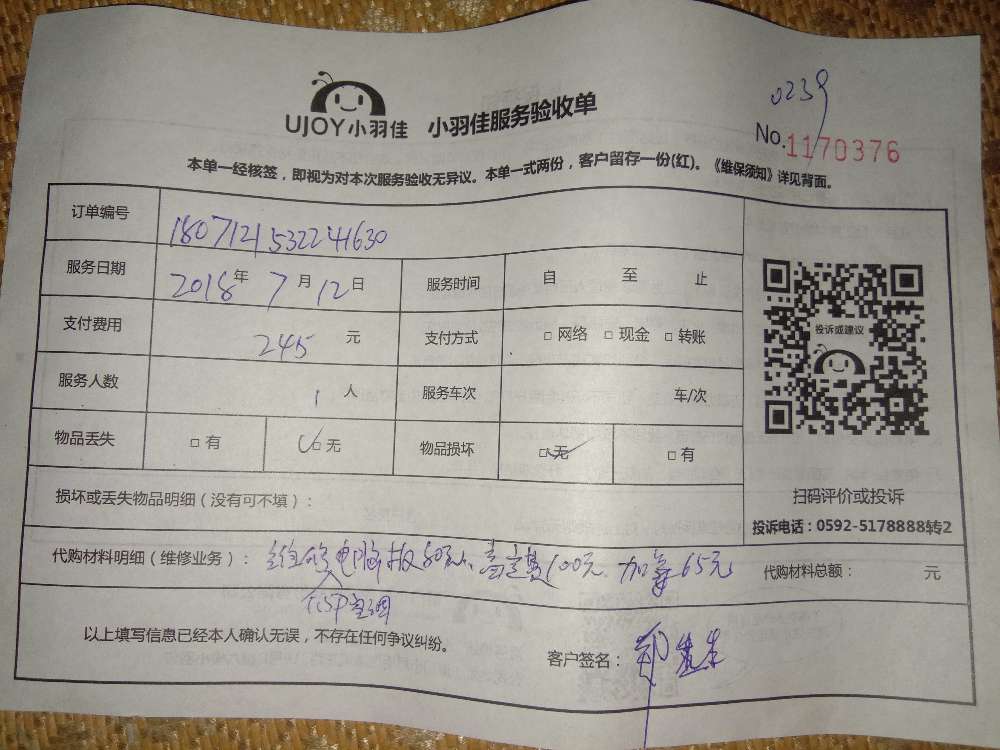 0239
UJOY小羽佳 小羽佳服务验收单
No.1170376
本单一经核签，即视为对本次服务验收无异议。本单一式两份，客户留存一份(红)。《维保须知》详见背面。
订单编号 1807121532241630
服务日期 2018年7月12日 服务时间 自 至 止
投诉或建议
支付费用 245 元 支付方式 □网络 □现金 □转账
服务人数 1 人 服务车次 车/次
物品丢失 □有 □无 物品损坏 □无 □有
损坏或丢失物品明细（没有可不填）：
扫码评价或投诉
投诉电话：0592-5178888转2
代购材料明细（维修业务）： 维修电脑板80元、高空费100元 加氟65元 代购材料总额： 元
1.5P空调
以上填写信息已经本人确认无误，不存在任何争议纠纷。
客户签名： 先生